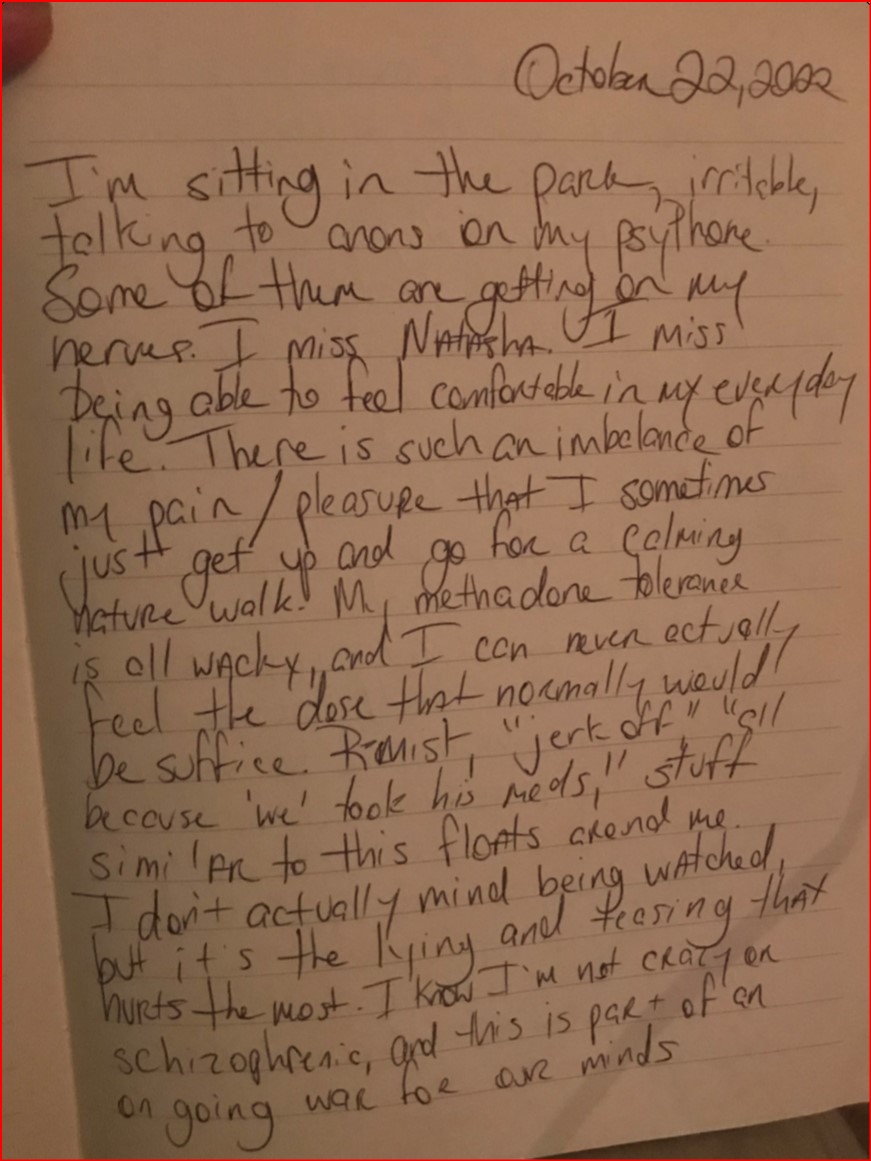 October 22, 2022
I'm sitting in the park, irritable,
talking to anons on my psyPhone.
Some of them are getting on my
nerves. I miss NATASHA. I miss
being able to feel comfortable in my everyday
life. There is such an imbalance of
my pain / pleasure that I sometimes
just get up and go for a calming
nature walk. My methadone tolerance
is all wacky, and I can never actually
feel the dose that normally would
be suffice. "jerk off," "all
because 'we' took his meds," stuff
similar to this floats arond me.
I don't actually mind being watched,
but it's the lying and teasing that
hurts the most. I know I'm not crazy or
schizophrenic, and this is part of an
on going war for our minds